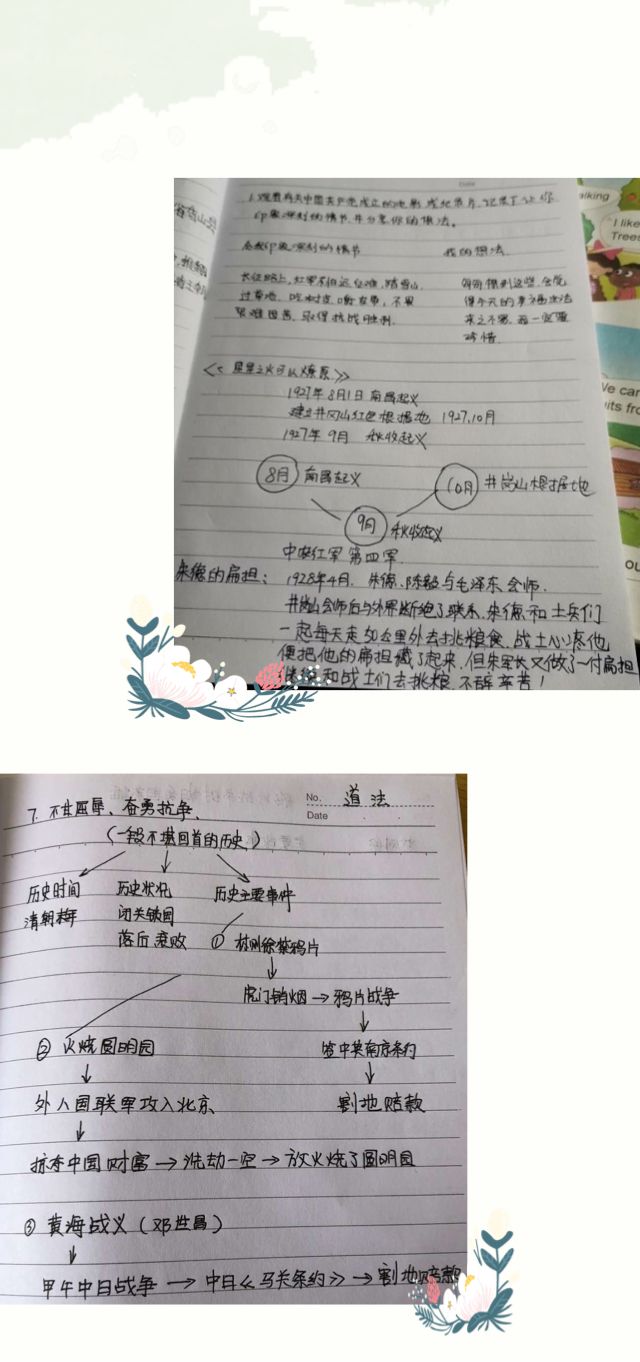 Date
1.观看有关中国共产党成立的电影或纪录片,记录了让你
印象深刻的情节,并分享你的想法。
令我印象深刻的情节 我的想法
长征路上,红军不怕远征难,踏雪山,
过草地、吃树皮、啃皮带,不畏
艰难困苦、取得抗战胜利.
每每想到这些,会觉
得今天的幸福生活
来之不易,我一定要
珍惜.
《星星之火可以燎原》
1927年8月1日南昌起义
建立井冈山红色根据地 1927,10月
1927年9月 秋收起义
8月 南昌起义
10月 井岗山根据地
9月 秋收起义
中央红军第四军.
朱德的扁担: 1928年4月.朱德.陈毅与毛泽东会师.
井岗山会师后与外界断绝了联系.朱德和士兵们
一起每天走50里外去挑粮食.战士心疼他
便把他的扁担藏了起来.但朱军长又做了一付扁担
继续和战士们去挑粮.不辞辛苦!
alking
I like
Trees
Ve can
its from
ou
No. 道法
Date
7.不甘屈辱、奋勇抗争、
(一段不堪回首的历史)
历史时间 历史状况 历史主要事件
清朝晚年 闭关锁国
落后衰败 ① 林则徐禁鸦片
虎门销烟→鸦片战争
② 火烧圆明园 签中英南京条约
外人国联军攻入北京 割地赔款
掠夺中国财富→洗劫一空→放火烧了圆明园
③ 黄海战义(邓世昌)
甲午中日战争→中日《马关条约》→割地赔款